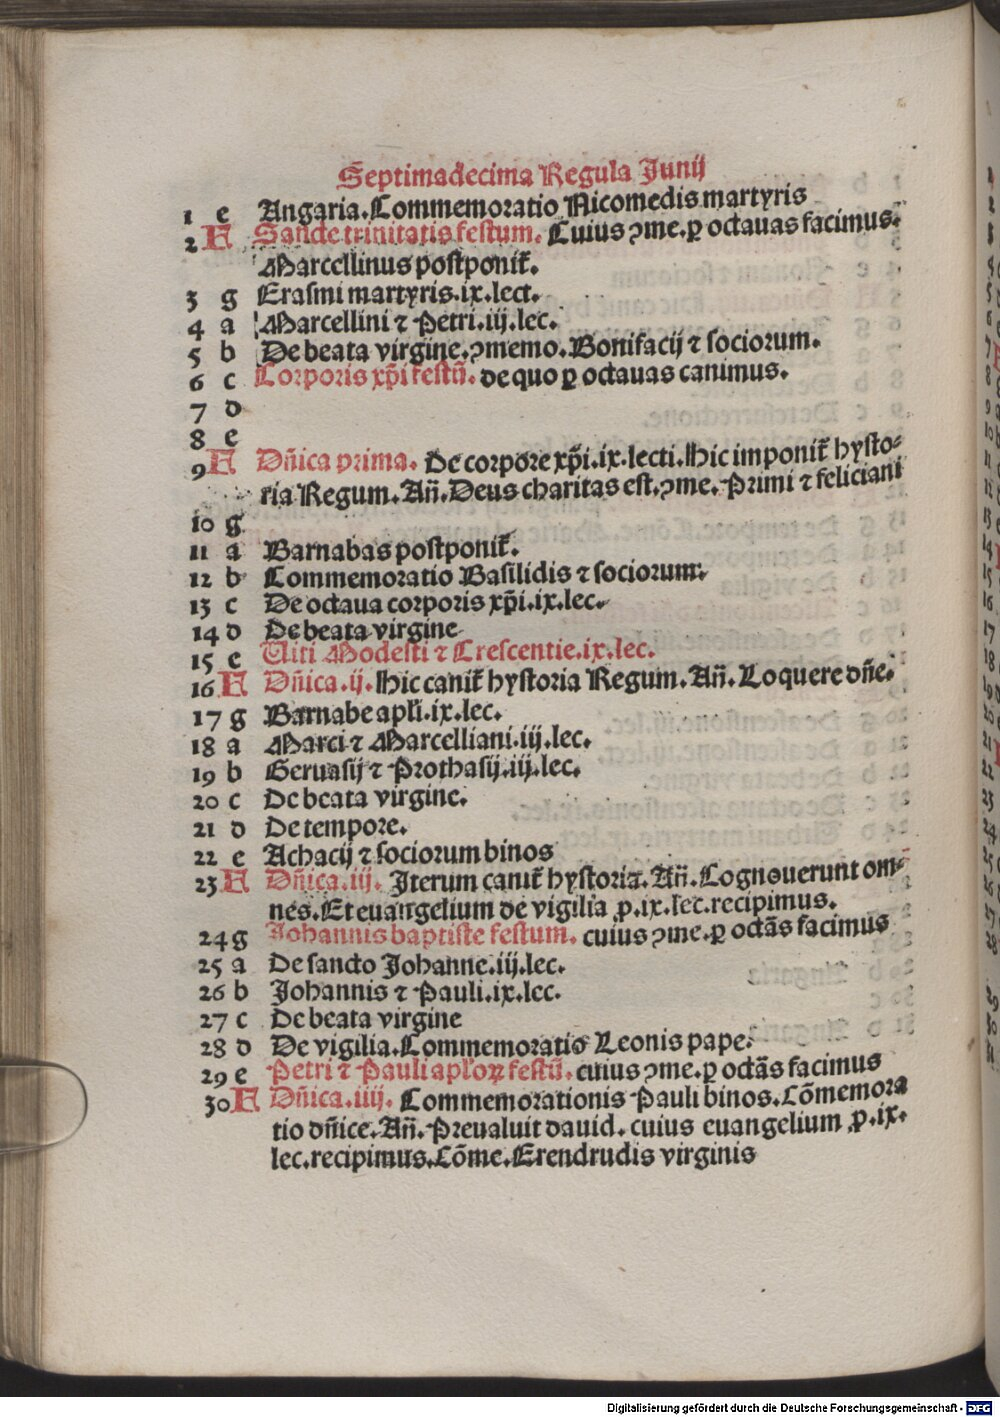 Septimadecima Regula Junij
1 e Angaria. Commemoratio Nicomedis martyris
2 F Sancte trinitatis festum. Cuius ↄme. ꝑ octauas facimus.
Marcellinus postponit̃.
3 g Erasmi martyris. ix. lect.
4 a Marcellini ⁊ Petri. iij. lec.
5 b De beata virgine. ↄmemo. Bonifacij ⁊ sociorum.
6 c Corporis xp̃i festũ. de quo ꝑ octauas canimus.
7 d
8 e
9 F Dñica prima. De corpore xp̃i. ix. lecti. Hic imponit̃ hysto-
ria Regum. Añ. Deus charitas est. ↄme. Primi ⁊ feliciani
10 g
11 a Barnabas postponit̃.
12 b Commemoratio Basilidis ⁊ sociorum.
13 c De octaua corporis xp̃i. ix. lec.
14 d De beata virgine
15 e Uiti Modesti ⁊ Crescentie. ix. lec.
16 F Dñica. ij. Hic canit̃ hystoria Regum. Añ. Loquere dñe.
17 g Barnabe apl̃i. ix. lec.
18 a Marci ⁊ Marcelliani. iij. lec.
19 b Geruasij ⁊ Prothasij. iij. lec.
20 c De beata virgine.
21 d De tempore.
22 e Achacij ⁊ sociorum binos
23 F Dñica. iij. Iterum canit̃ hystoria. Añ. Cognouerunt om-
nes. Et euangelium de vigilia ꝓ. ix. lec. recipimus.
24 g Johannis baptiste festum. cuius ↄme. ꝑ octãs facimus
25 a De sancto Johanne. iij. lec.
26 b Johannis ⁊ Pauli. ix. lec.
27 c De beata virgine
28 d De vigilia. Commemoratio Leonis pape.
29 e Petri ⁊ Pauli apl̃oꝝ festũ. cuius ↄme. ꝑ octãs facimus
30 F Dñica. iiij. Commemorationis Pauli binos. Cõmemora
tio dñice. Añ. Preualuit dauid. cuius euangelium ꝓ. ix.
lec. recipimus. Cõme. Erendrudis virginis
Digitalisierung gefördert durch die Deutsche Forschungsgemeinschaft - DFG